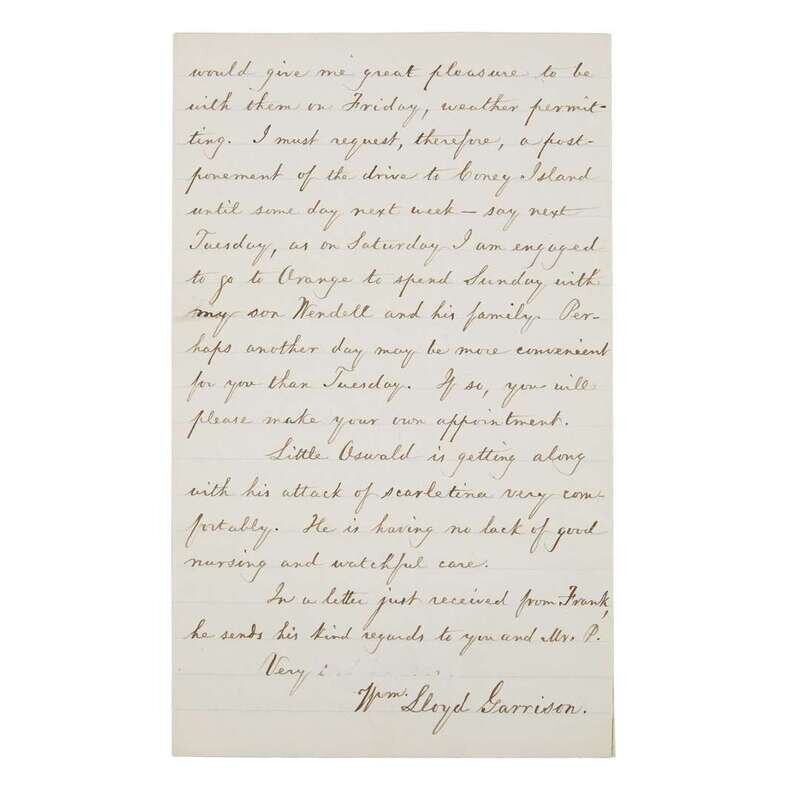 would give me great pleasure to be
with them on Friday, weather permit-
ting. I must request, therefore, a post-
ponement of the drive to Coney Island
until some day next week — say next
Tuesday, as on Saturday I am engaged
to go to Orange to spend Sunday with
my son Wendell and his family. Per-
haps another day may be more convenient
for you than Tuesday. If so, you will
please make your own appointment.
Little Oswald is getting along
with his attack of scarletina very com-
fortably. He is having no lack of good
nursing and watchful care.
In a letter just received from Frank,
he sends his kind regards to you and Mr. P.
Very
Wm. Lloyd Garrison.